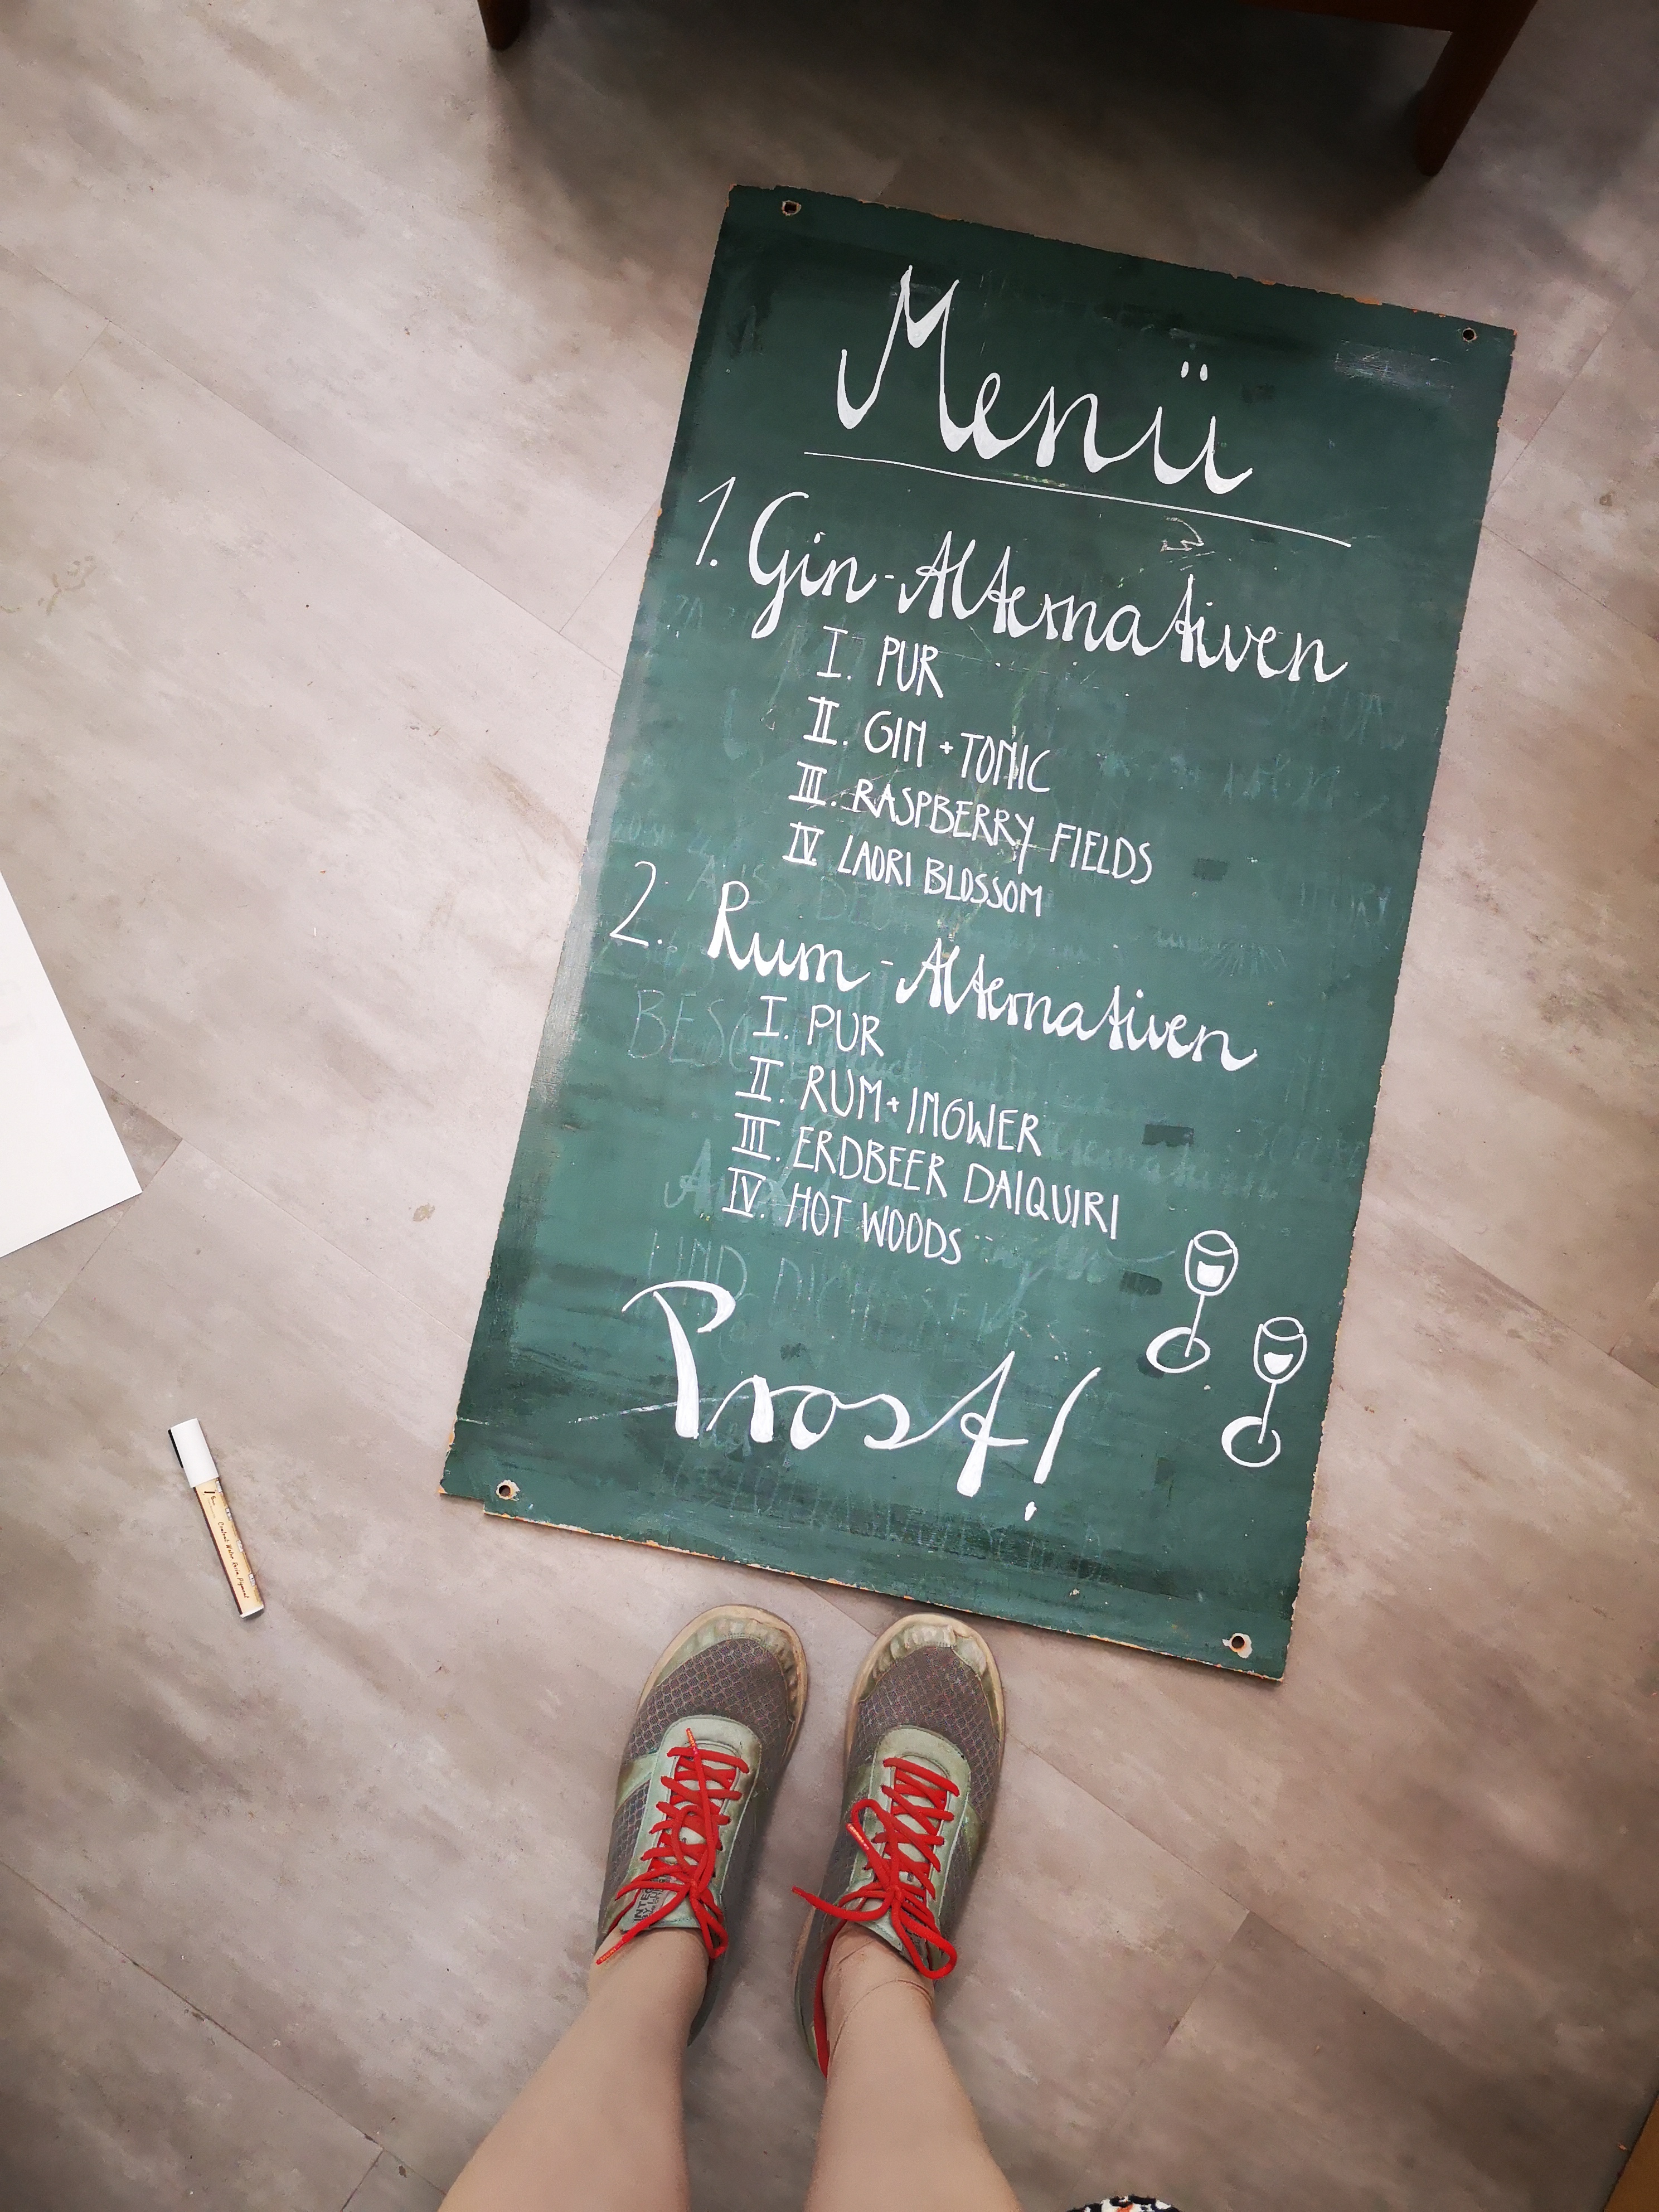 Menü
1. Gin-Alternativen
I. PUR
II. GIN + TONIC
III. RASPBERRY FIELDS
IV LAORI BLOSSOM
2. Rum-Alternativen
I. PUR
II. RUM + INGWER
III. ERDBEER DAIQUIRI
IV. HOT WOODS
Prost!